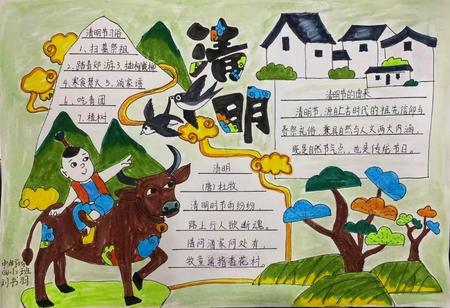 清明
清明节习俗
1、扫墓祭祖
2、踏青郊游 3、插柳
4、寒食禁火 5、
6、吃青团
7、植树
清明节的由来
清明节，源自上古时代的祖先信仰与
春祭礼俗，兼具自然与人文两大内涵，
既是自然节气点，也是传统节日。
清明
(唐)杜牧
清明时节雨纷纷，
路上行人欲断魂。
借问酒家何处有，
牧童遥指杏花村。